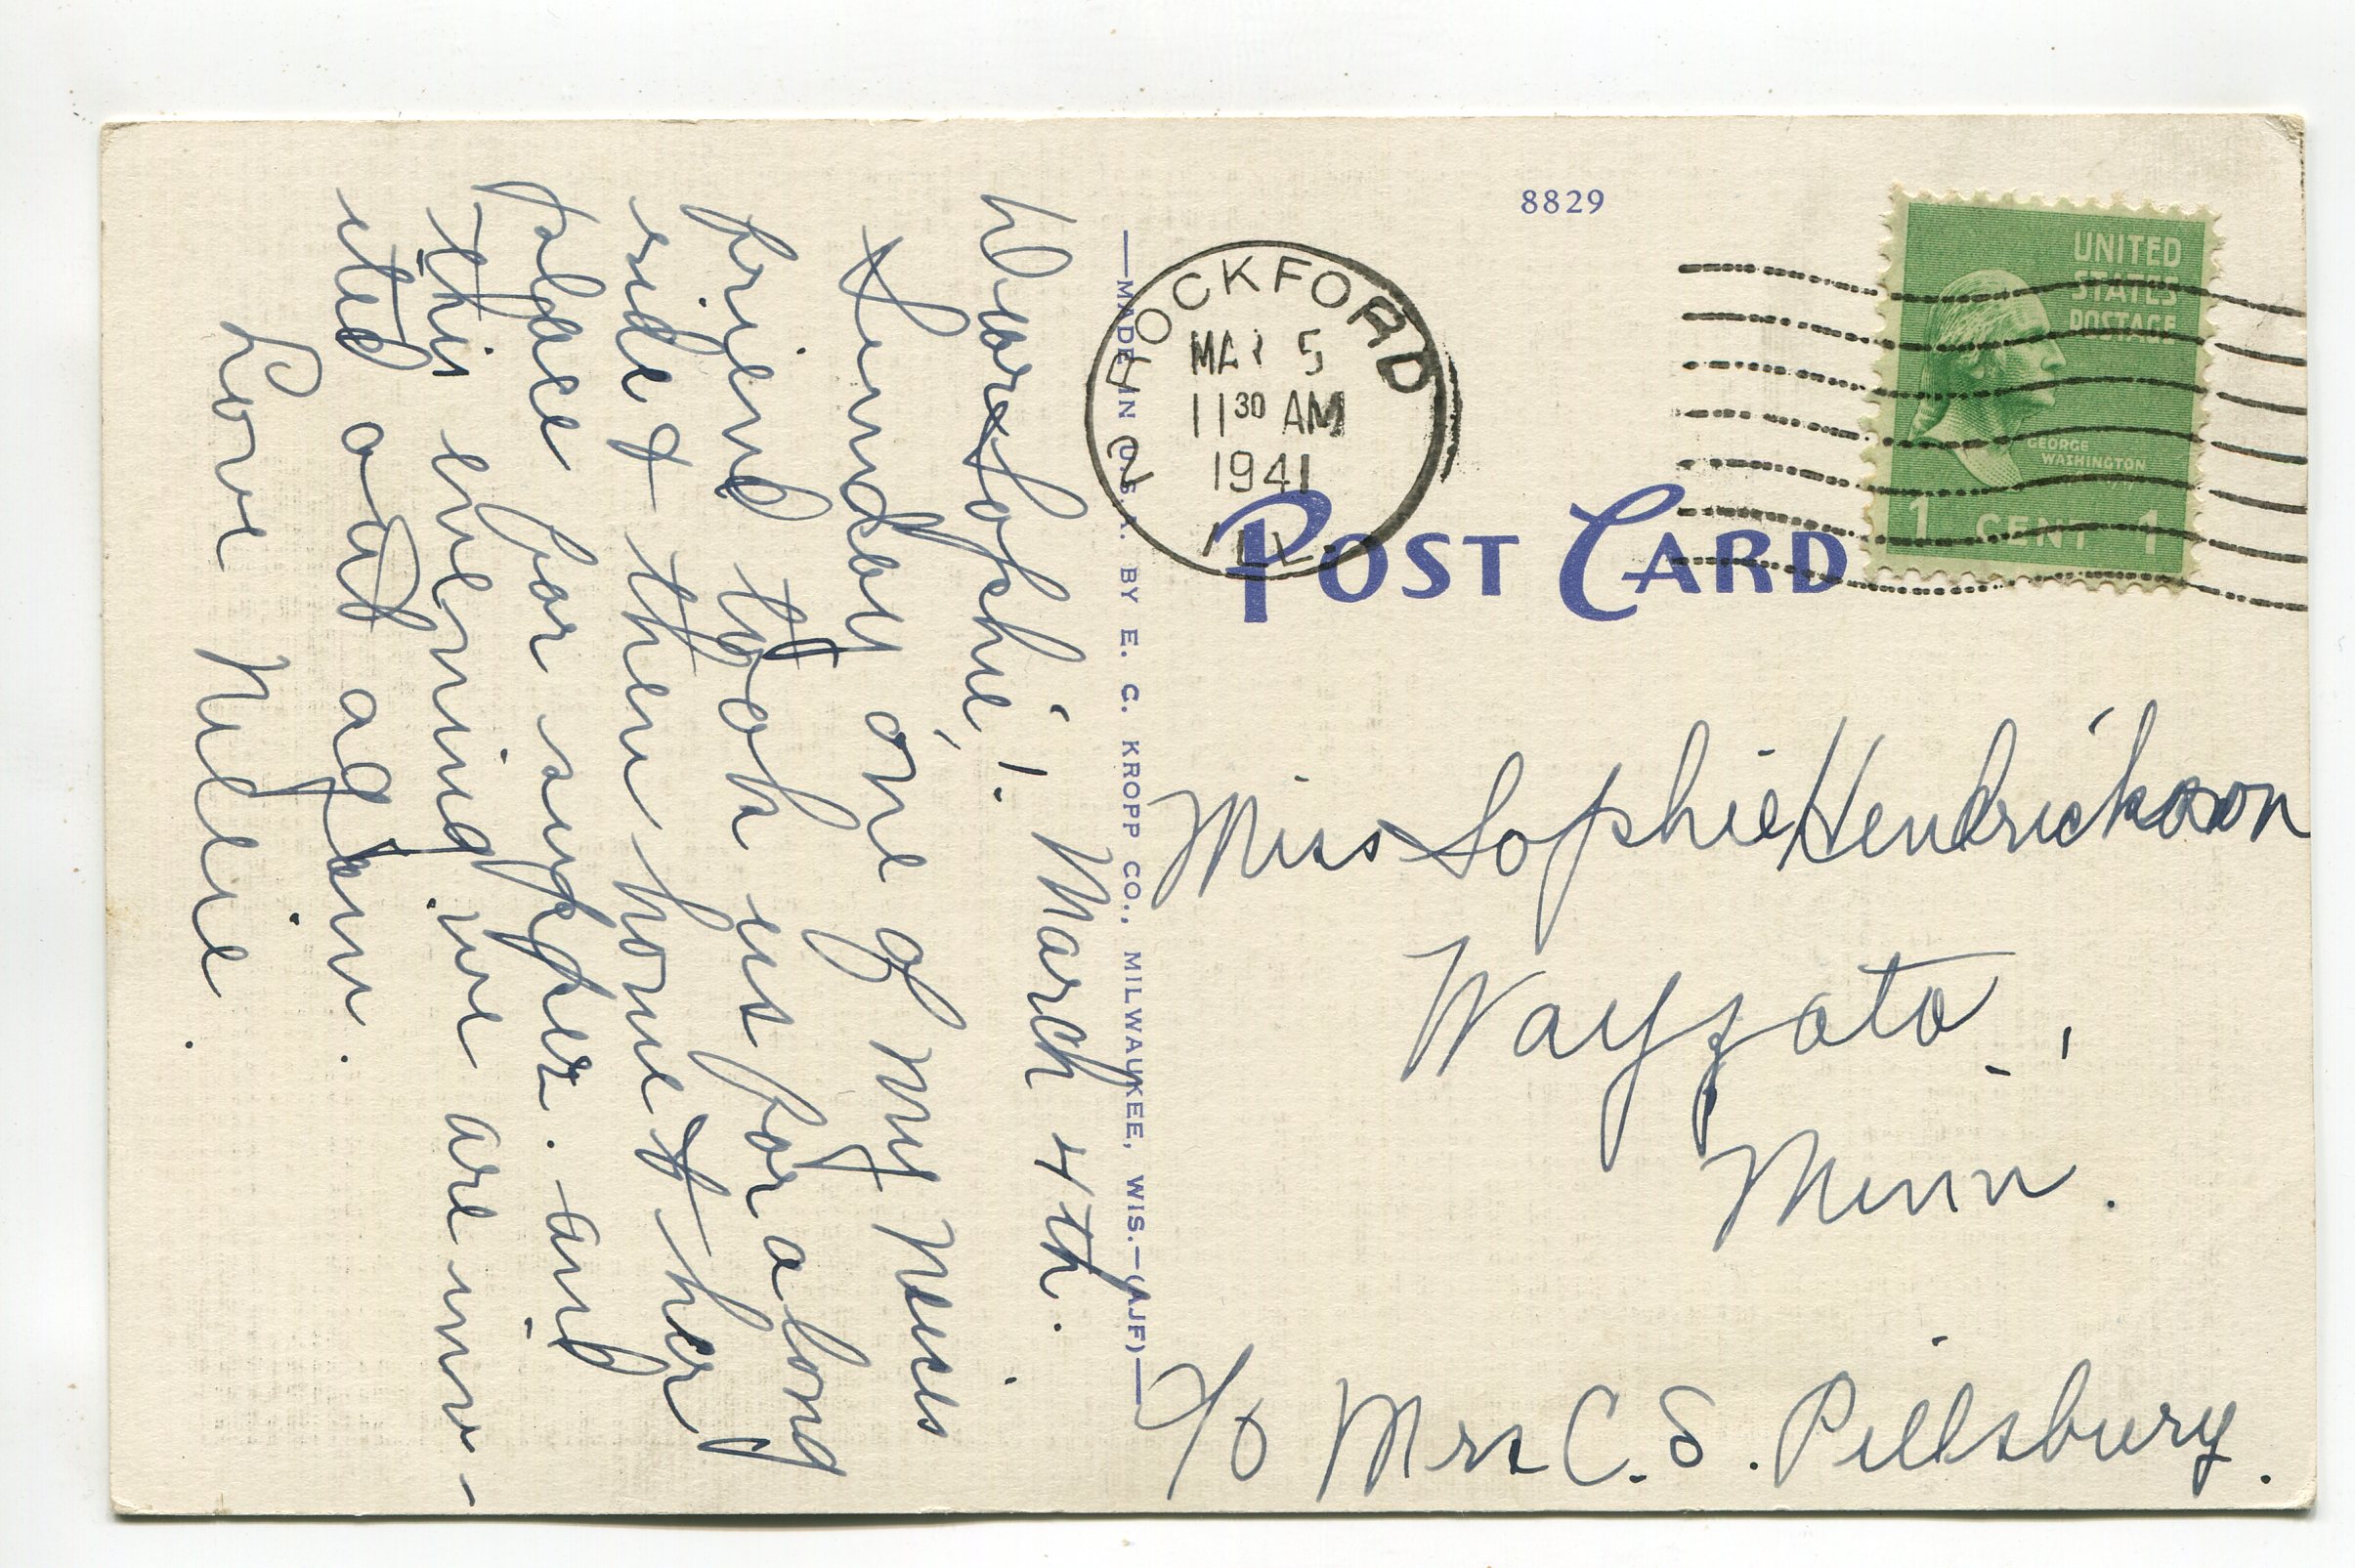 8829
UNITED
STATES
POSTAGE
GEORGE
WASHINGTON
1 CENT 1
ROCKFORD
MAR 5
11 30 AM
1941
ILL.
POST CARD
MADE IN U.S.A. BY E. C. KROPP CO., MILWAUKEE, WIS.—(AJF)
March 4th.
Dear Sophie,
Sunday one of my
friend took us for a long
ride & then home & her
place for supper. and
this evening we are inv-
ited out again.
Love Nellie.
Miss Sophie Hendrickson
Wayzata,
Minn.
c/o Mrs C. S. Pillsbury.